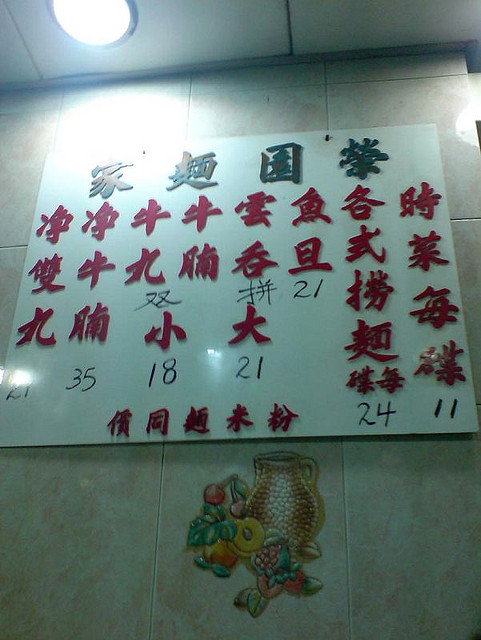 榮園麵家
時菜每碟 11
各式撈麵每碟 24
魚旦 21
雲吞
牛腩
牛丸
拼 双
大 21
小 18
净牛腩 35
净雙丸 21
粉米麵同價